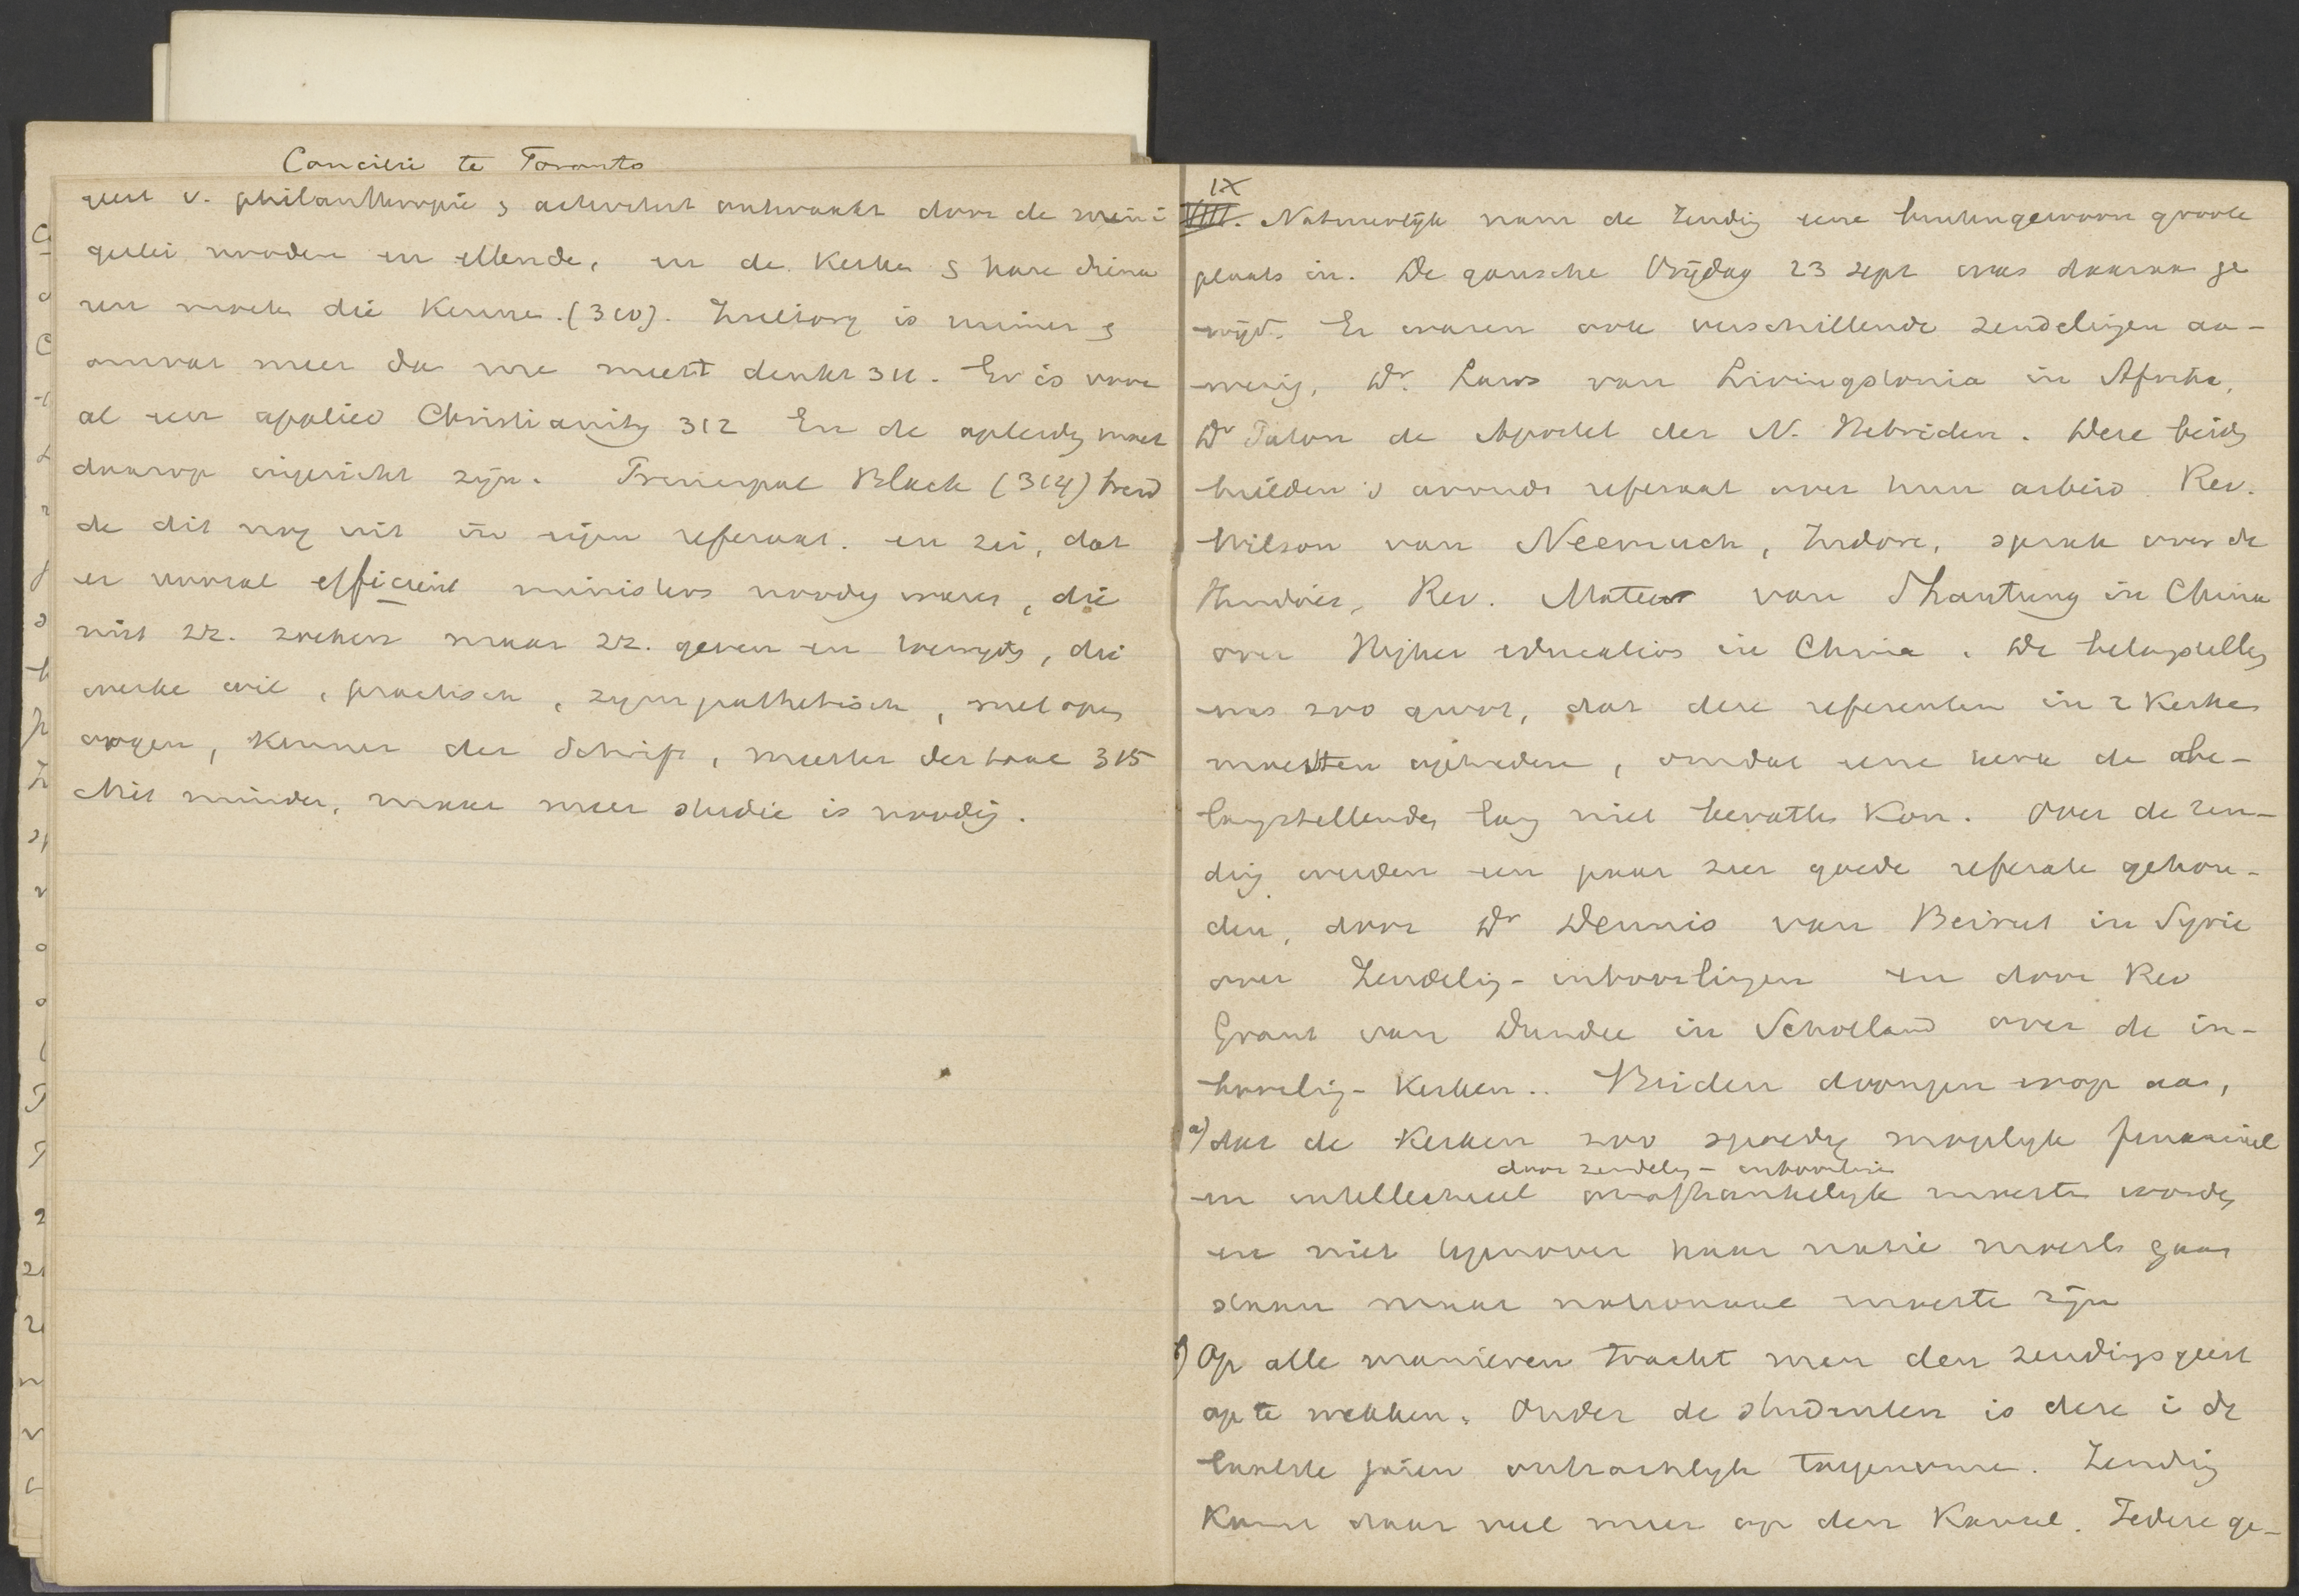 Concilie te Toronto
geest v. philanthropie & activiteit ontwaakt door de meni
gerlei nooden en ellende, en de Kerken & hare diena
ren moeten die kennen. (310). Zielzorg is ruimer &
omvat meer dan men meest denkt 311. Er is voor
al een applied Christianity 312 En de opleidg moet
daarop ingericht zijn. Principal Black (314) breid
de dit nog uit in zijn referaat. en zei, dat
er vooral efficient ministers noodig waren, die
niet zz. zoeken maar zz. geven en, die
werke wil, practisch, sympathetisch, met open
oogen, kenner der Schrift, meester der taal 315
Niet minder, maar meer studie is noodig.
IX
VIII. Natuurlijk nam de Zendig eene buitengewoon groote
plaats in. De gansche Vrijdag 23 Sept was daaraan ge
wijd. Er waren ook verschillende zendelingen aan-
wezig, Dr. Laws van Livingstonia in Afrika,
Dr Paton de Apostel der N. Hebriden. Deze beide
hielden 's avonds referaat over hun arbeid. Rev.
Wilson van Neemuch, Indore, sprak over de
Hindoes, Rev. Mateer van Shantung in China
over Higher education in China. De belangstellg
was zoo groot, dat deze referenten in 2 Kerken
moesten optreden, omdat eene kerk de be-
langstellenden lang niet bevatten kon. Over de zen-
dig werden een paar zeer goede referate gehou-
den, door Dr Dennis van Beirut in Syrie
over Zendelig-inboorlingen en door Rev
Grant van Dundee in Schotland over de in-
boorlig-Kerken.. Beiden drongen erop aan,
a) dat de Kerken zoo spoedig mogelijk financieel
door zendelig-inboorlingen
en intellectueel onafhankelijk moeste worden
en niet tegenover haar natie moeste gaan
staan maar nationaal moeste zijn
b) Op alle manieren tracht men den zendigsgeest
op te wekken. Onder de studenten is deze i de
laatste jaren ontzachlijk toegenome. Zendig
komt daar veel meer op den Kansel. Iedere ge-